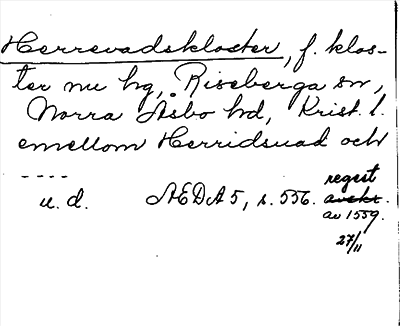 Herrevadskloster, f. klos-
ter nu hg, Riseberga sn,
Norra Åsbo hd, Krist. l.
emellom Herridsuad och
----
u. d. AEDA 5, s. 556. regest
avskr.
av 1559.
27/11